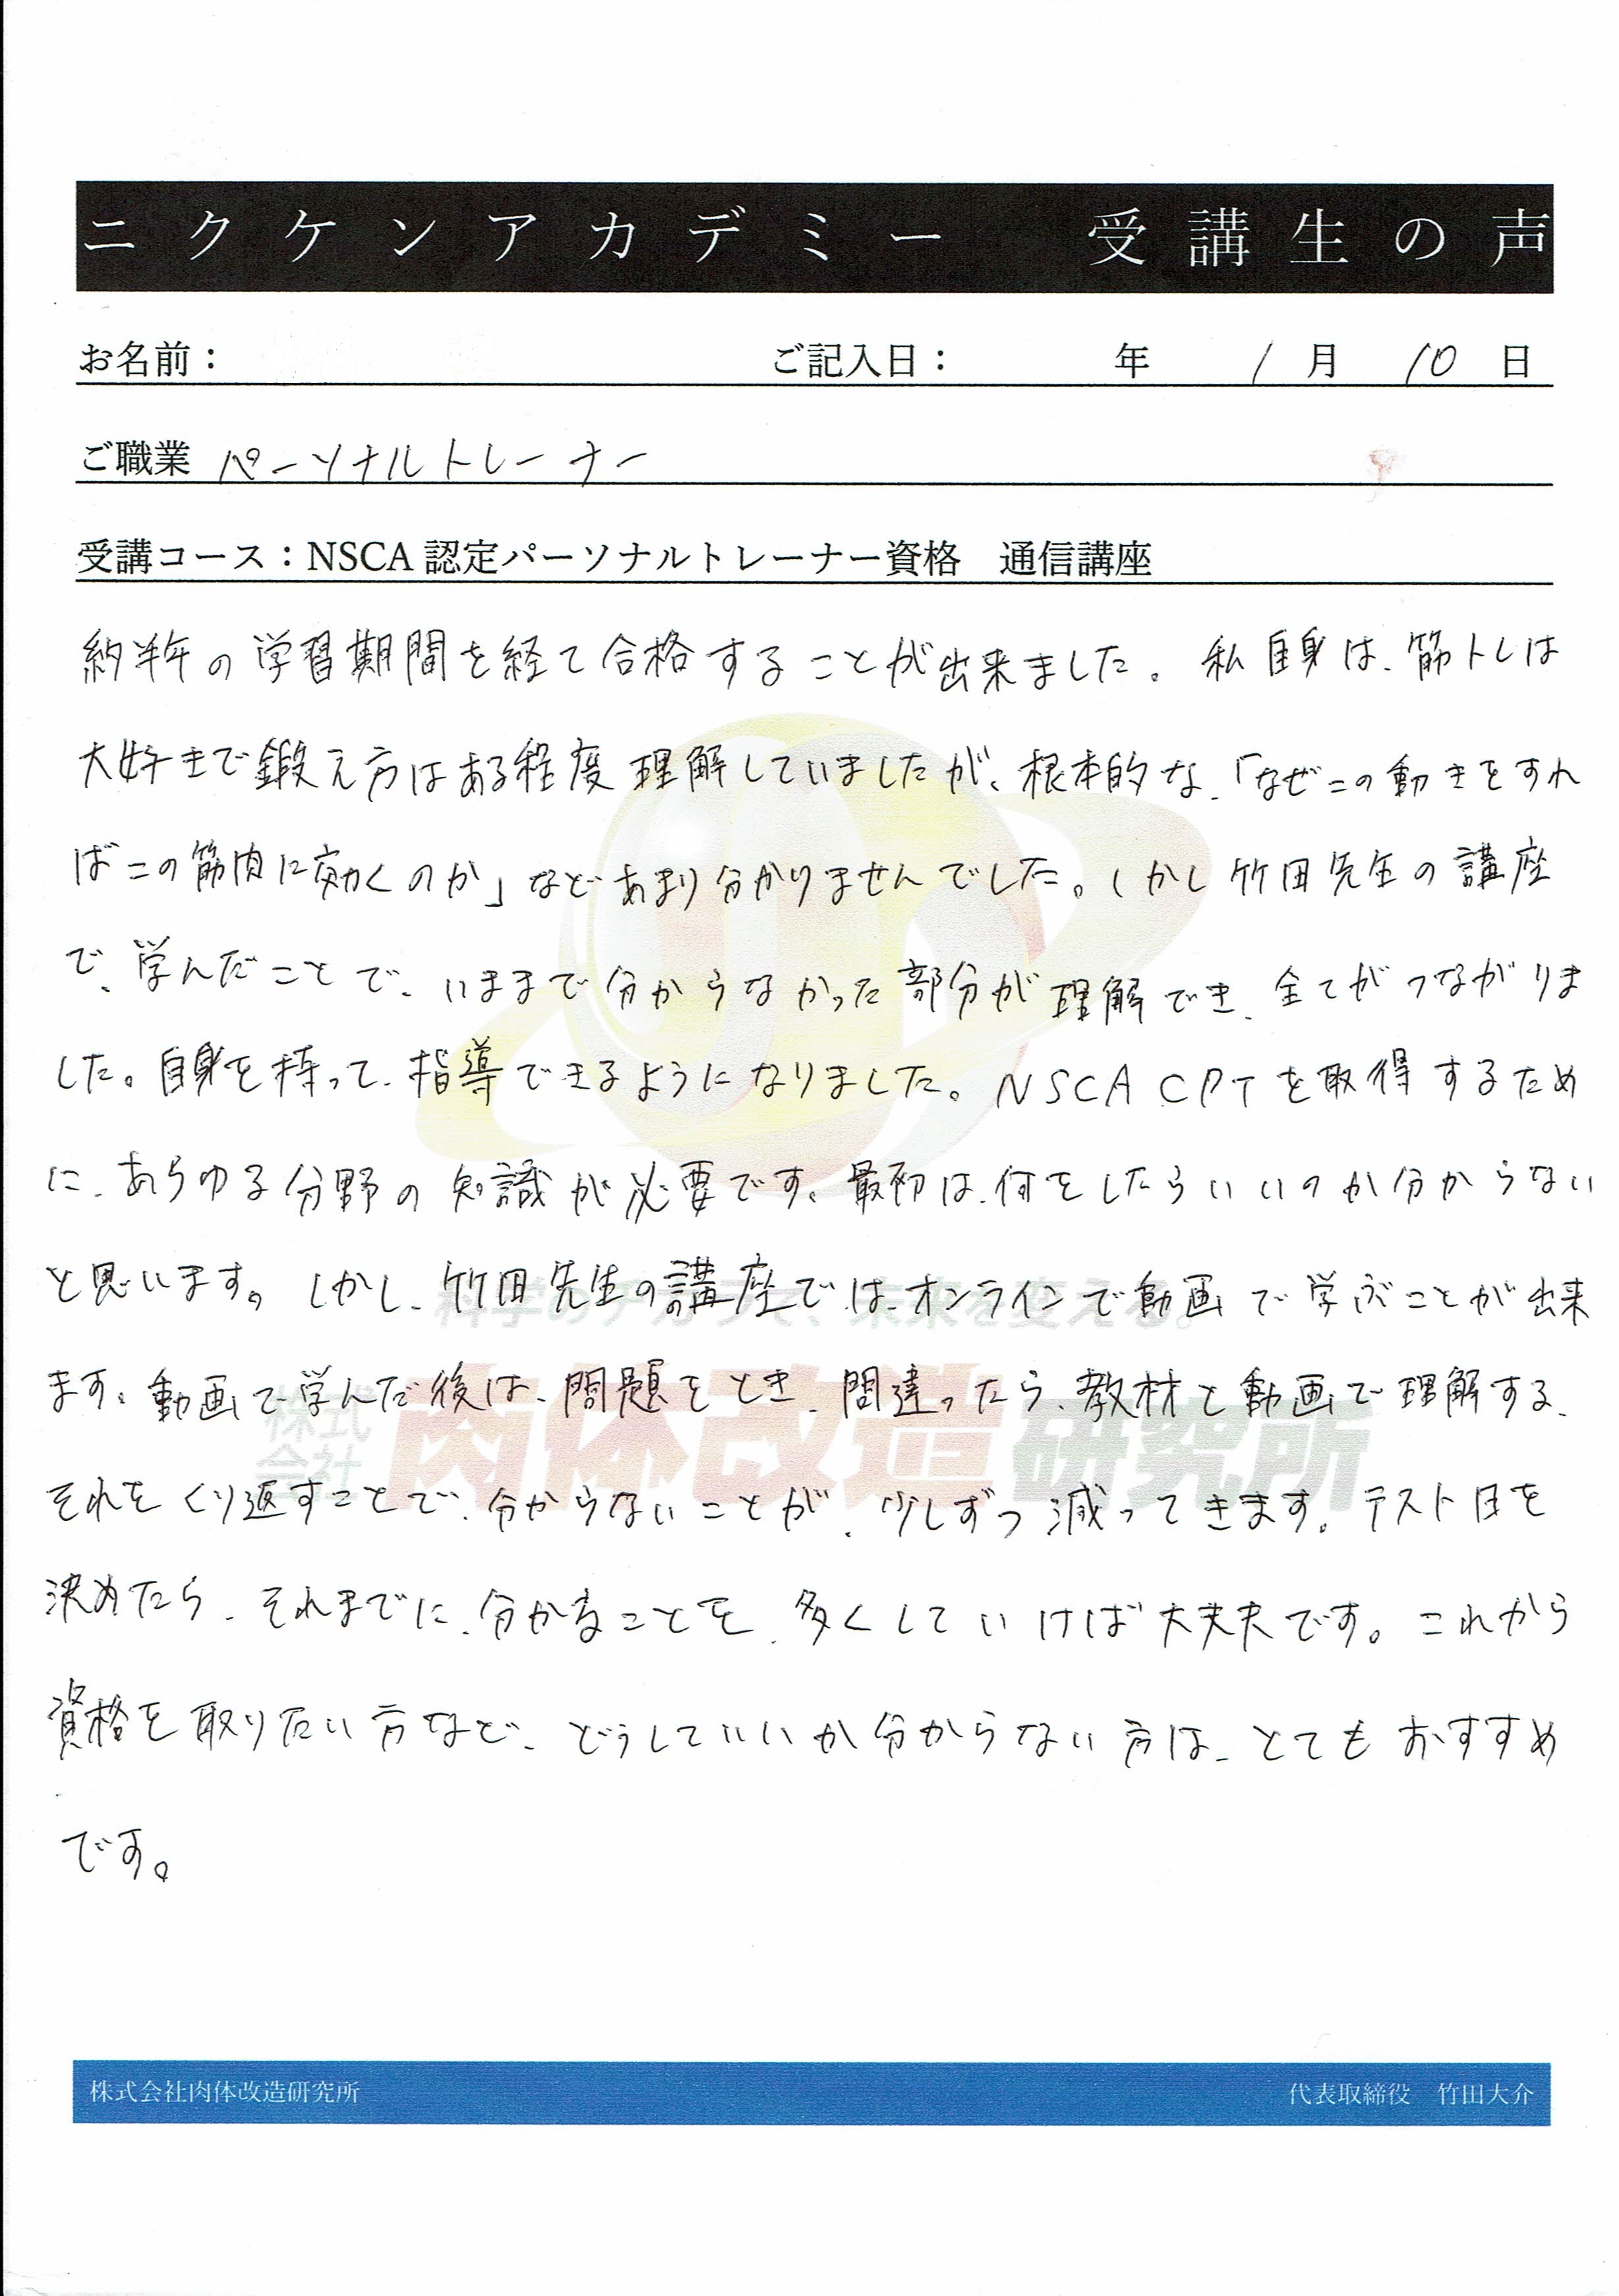 ニクケンアカデミー 受講生の声
お名前： ご記入日： 年 1月 10日
ご職業 パーソナルトレーナー
受講コース：NSCA認定パーソナルトレーナー資格 通信講座
約半年の学習期間を経て合格することが出来ました。私自身は、筋トレは
大好きで鍛え方はある程度理解していましたが、根本的な、「なぜこの動きをすれ
ばこの筋肉に効くのか」などあまり分かりませんでした。しかし竹田先生の講座
で、学んだことで、いままで分からなかった部分が理解でき、全てがつながりま
した。自身を持って、指導できるようになりました。NSCA CPTを取得するため
に、あらゆる分野の知識が必要です。最初は、何をしたらいいのか分からない
と思います。しかし、竹田先生の講座では、オンラインで動画で学ぶことが出来
ます。動画で学んだ後は、問題をとき、間違ったら、教材と動画で理解する、
それをくり返すことで、分からないことが、少しずつ減ってきます。テスト日を
決めたら、それまでに、分かることを、多くしていけば大丈夫です。これから
資格を取りたい方など、どうしていいか分からない方は、とてもおすすめ
です。
科学のチカラで、未来を変える。
株式会社 肉体改造研究所
株式会社肉体改造研究所 代表取締役 竹田大介